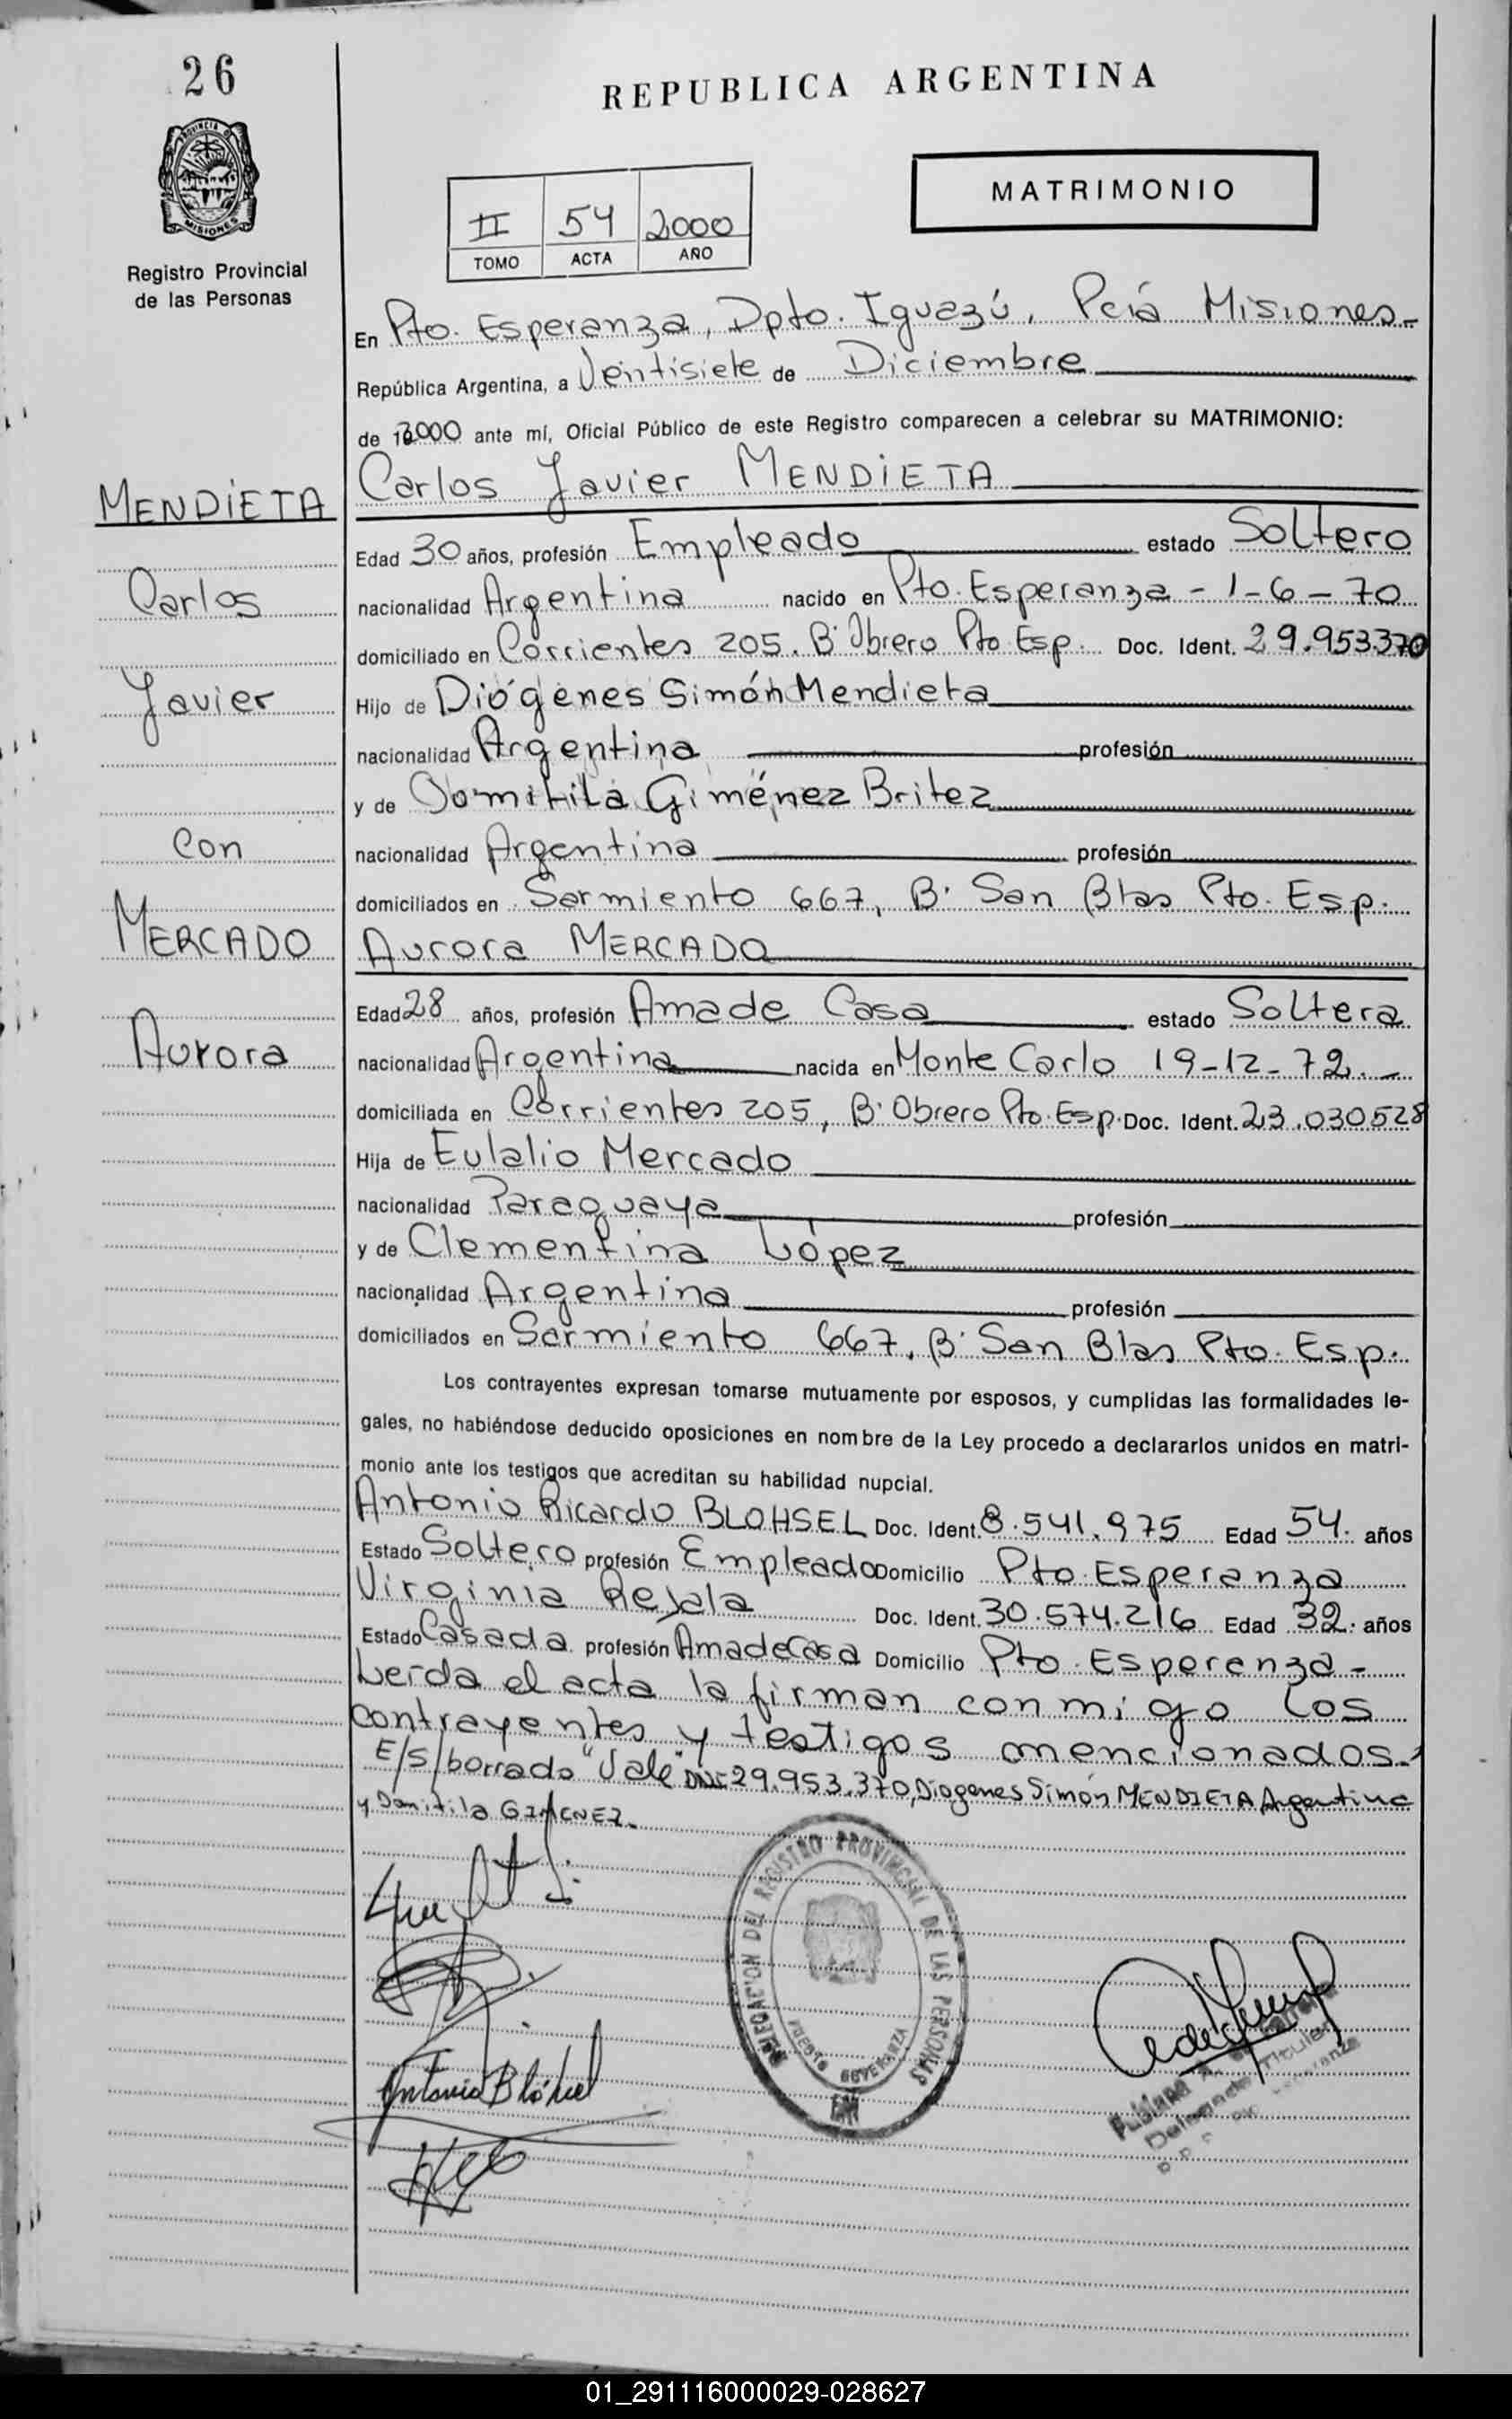 26
REPUBLICA ARGENTINA
PROVINCIA DE
MISIONES
Registro Provincial
de las Personas
II 54 2000
TOMO ACTA AÑO
MATRIMONIO
En Pto. Esperanza, Dpto. Iguazú, Pciá Misiones-
República Argentina, a Ventisiete de Diciembre
de 2000 ante mí, Oficial Público de este Registro comparecen a celebrar su MATRIMONIO:
Carlos Javier MENDIETA
Edad 30 años, profesión Empleado estado Soltero
nacionalidad Argentina nacido en Pto. Esperanza - 1-6-70
domiciliado en Corrientes 205. B° Obrero Pto Esp. Doc. Ident. 29.953.370
Hijo de Diógenes Simón Mendieta
nacionalidad Argentina profesión
y de Domitila Giménez Britez
nacionalidad Argentina profesión
domiciliados en Sarmiento 667, B° San Blas Pto. Esp.
Aurora MERCADO
Edad 28 años, profesión Amade Casa estado Soltera
nacionalidad Argentina nacida en Monte Carlo 19-12-72.-
domiciliada en Corrientes 205, B° Obrero Pto. Esp. Doc. Ident. 23.030528
Hija de Eulalio Mercado
nacionalidad Paraguaya profesión
y de Clementina López
nacionalidad Argentina profesión
domiciliados en Sarmiento 667, B° San Blas Pto. Esp.
Los contrayentes expresan tomarse mutuamente por esposos, y cumplidas las formalidades le-
gales, no habiéndose deducido oposiciones en nombre de la Ley procedo a declararlos unidos en matri-
monio ante los testigos que acreditan su habilidad nupcial.
Antonio Ricardo BLOHSEL Doc. Ident. 8.541.975 Edad 54. años
Estado Soltero profesión Empleado Domicilio Pto. Esperanza
Virginia Rejala Doc. Ident. 30.574.216 Edad 32. años
Estado Casada profesión AmadeCasa Domicilio Pto. Esperanza-
Leida el acta la firman conmigo los
contrayentes y testigos mencionados.-
E/S/borrado "Vale" DNI 29.953.370, Diogenes Simón MENDIETA Argentina
y Domitila GIMENEZ.-
MENDIETA
Carlos
Javier
Con
MERCADO
Aurora
Antonio Blohsel
DELEGACION DEL REGISTRO PROVINCIAL DE LAS PERSONAS
PUERTO ESPERANZA
Titular
01_291116000029-028627